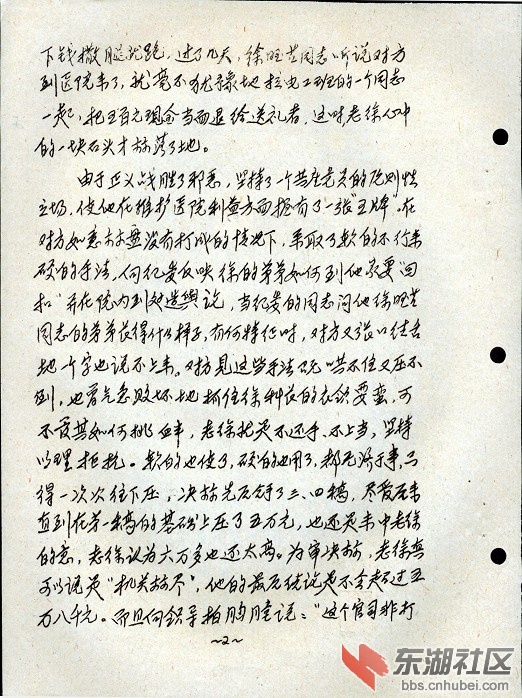 下钱撒腿就跑，过了几天，徐旺芸同志听说对方
到医院来了，就毫不犹豫地拉电工班的一个同志
一起，把五百元现金当面退给送礼者，这时，老徐心中
的一块石头才落了地。
由于正义战胜了邪恶，坚持了一个共产党员的原则性
立场，使他在维护医院利益方面握有了一张"王牌"。在
对方如意算盘没有打成的情况下，采取了软的不行来
硬的手法，向纪委反映徐的弟弟如何到他家要"回
扣"并在院内到处造舆说，当纪委的同志问他徐旺芸
同志的弟弟长得什么样子，有何特征时，对方又张口结舌
地一个字也说不上来。对方见这些手法既哄不住又压不
倒，也曾气急败坏地抓住徐科长的衣领要蛮，可
不管其如何挑衅，老徐就是不还手、不上当，坚持
以理抵抗。软的也使了，硬的也用了，都无济于事，只
得一次次往下压，决算先后弄了三、四稿，尽管后来
直到在第一稿的基础上压了五万元，也还是未中老徐
的意，老徐认为六万多也还太高。为审决算，老徐真
可以说是"机关算尽"，他的最后统说是不会超过五
万八千元。而且向领导拍胸膛说："这个官司非打
～2～
东湖社区
bbs.cnhubei.com